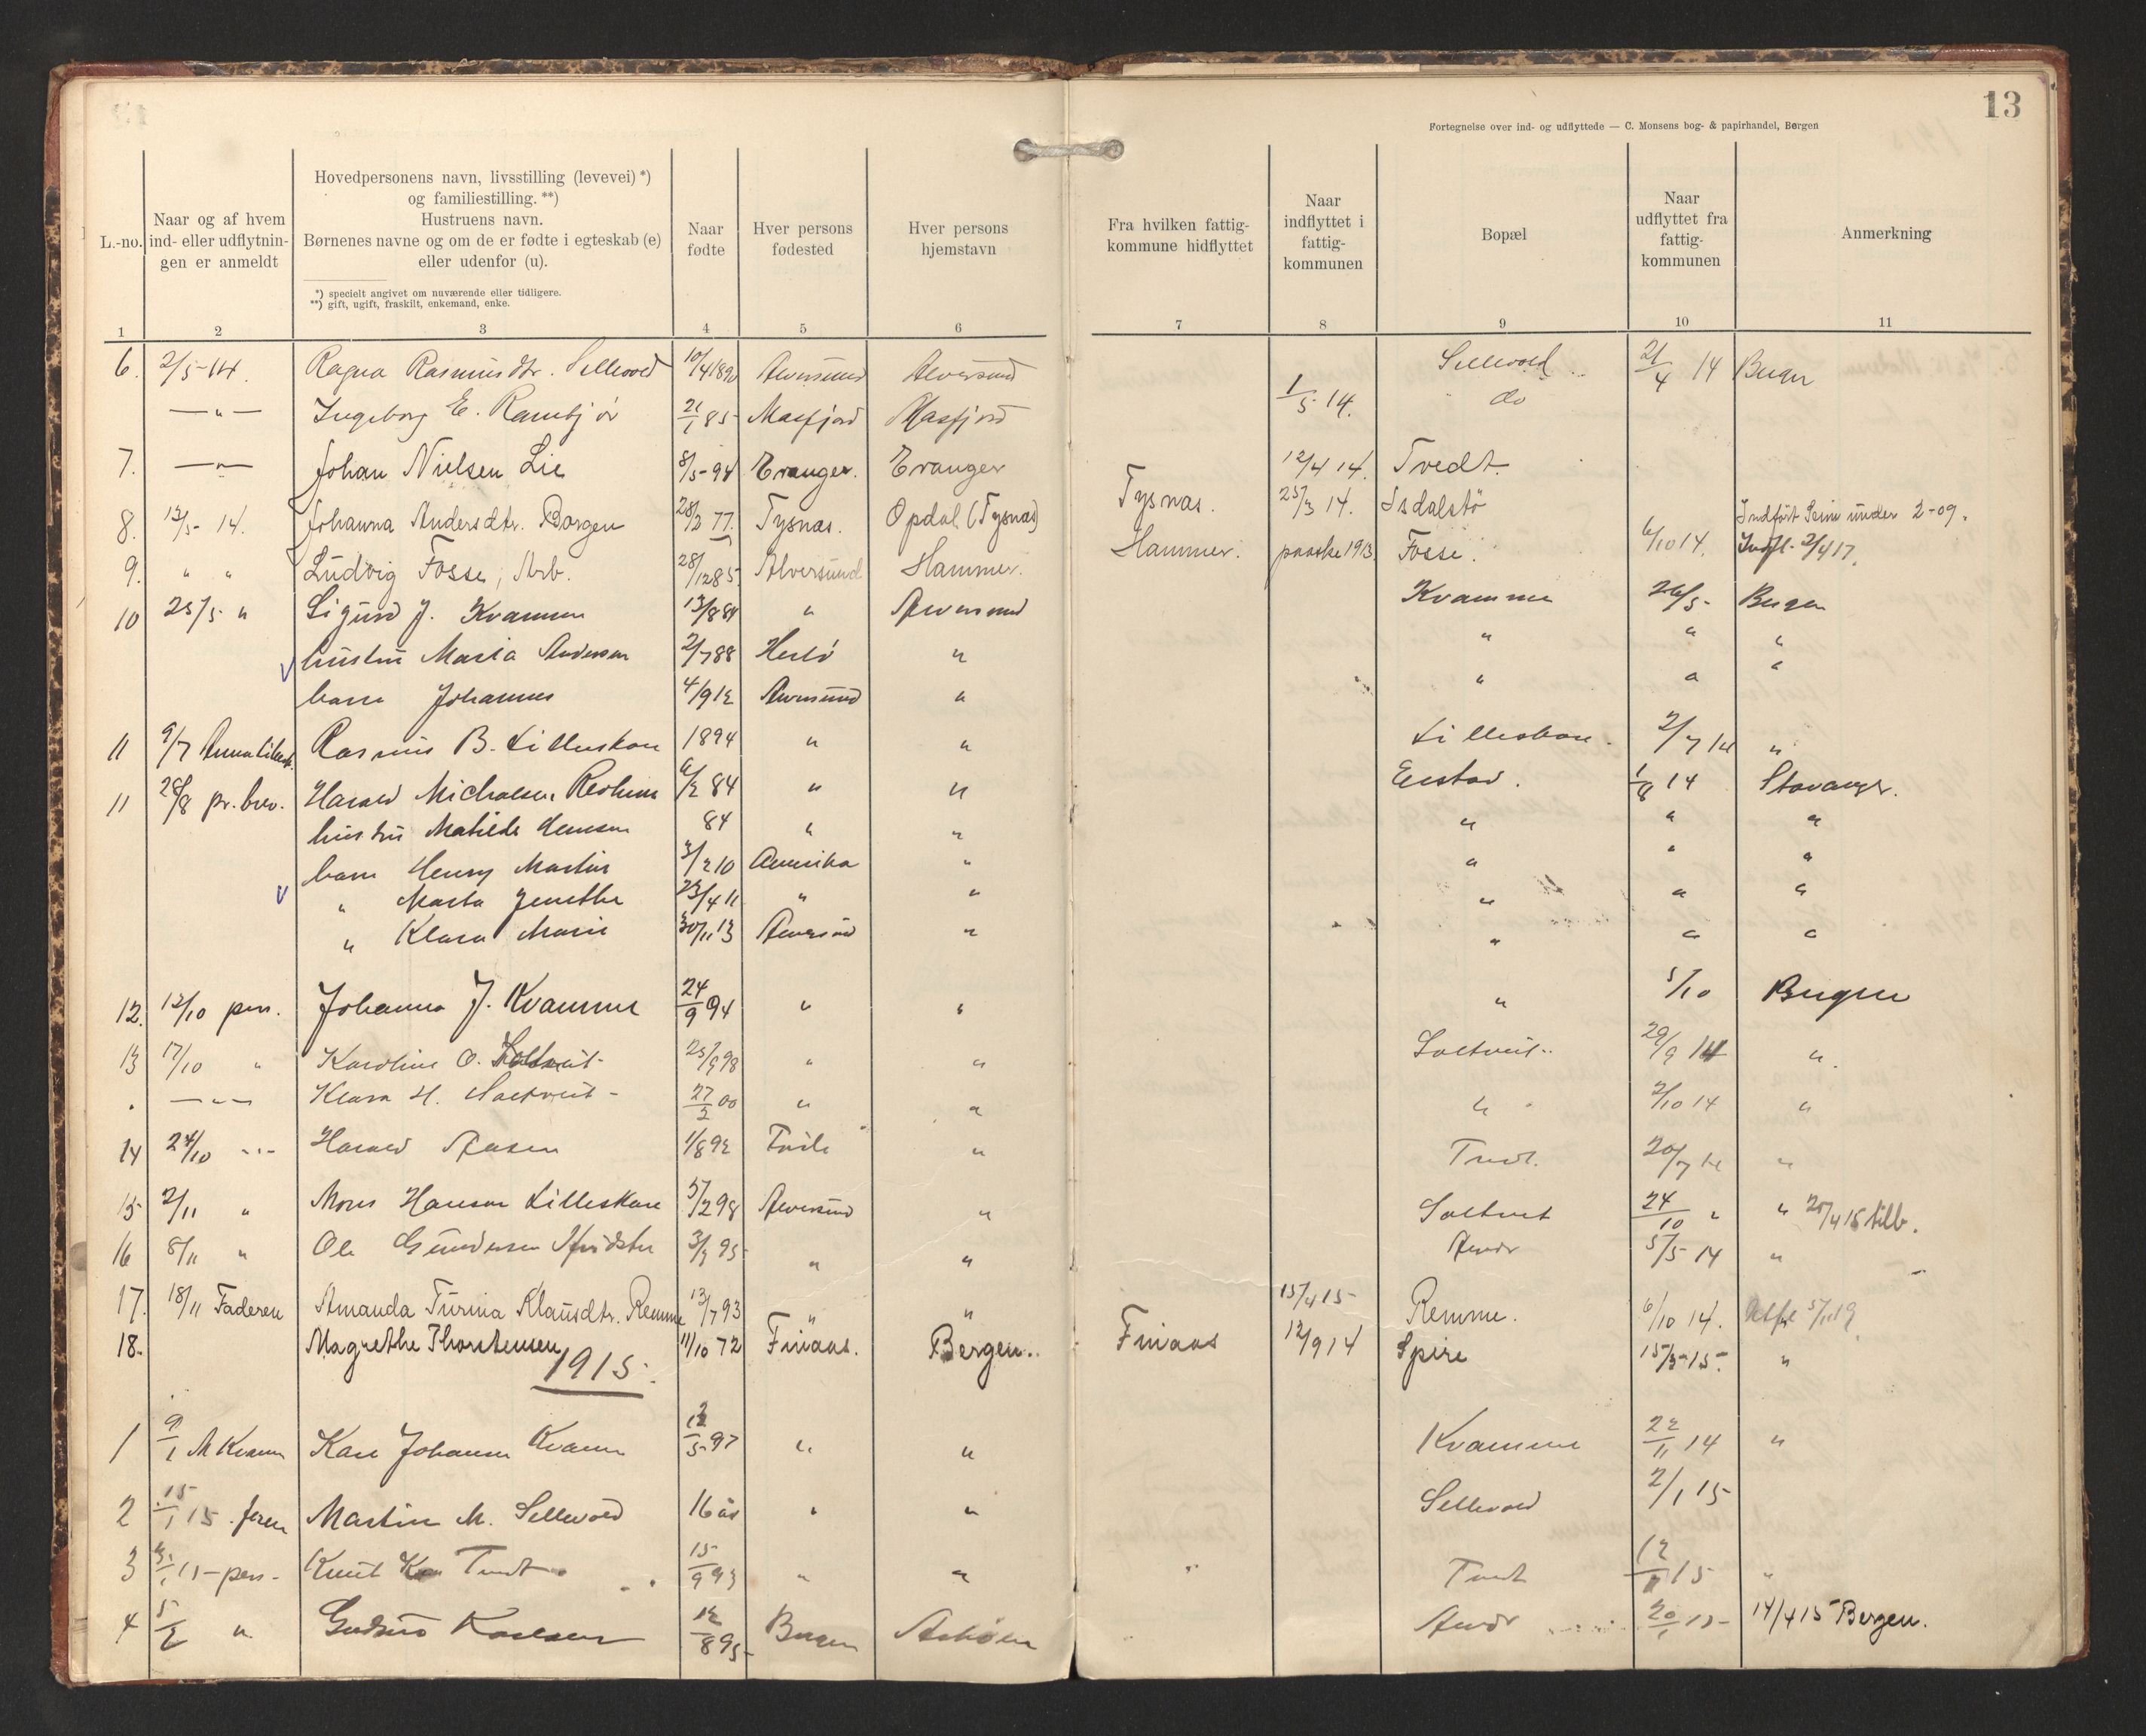 13
Fortegnelse over ind- og udflyttede — C. Monsens bog- & papirhandel, Bergen
L.-no.
Naar og af hvem
ind- eller udflytnin-
gen er anmeldt
Hovedpersonens navn, livsstilling (levevei) *)
og familiestilling. **)
Hustruens navn.
Børnenes navne og om de er fødte i egteskab (e)
eller udenfor (u).
*) specielt angivet om nuværende eller tidligere.
**) gift, ugift, fraskilt, enkemand, enke.
Naar
fødte
Hver persons
fødested
Hver persons
hjemstavn
Fra hvilken fattig-
kommune hidflyttet
Naar
indflyttet i
fattig-
kommunen
Bopæl
Naar
udflyttet fra
fattig-
kommunen
Anmerkning
1 2 3 4 5 6 7 8 9 10 11
6. 2/5-14. Ragna Rasmusdtr. Sellevold 10/4 1890 Alversund Alversund Sellevold 21/4 14 Bergen
— " — Ingeborg E. 21/1 85 Masfjord Masfjord 1/5 14. do
7. — " — Johan Nielsen Lie 8/5-94 Evanger. Evanger 12/4 14. Tvedt.
8. 12/5- 14. Johanna Andersdtr. Borgen 28/3 77. Tysnas. Opdal (Tysnas) Tysnas. 25/3 14. Isdalstö Indfört Seim under 2-09.
9. " " Ludvig Fosse, Arb. 28/12 85 Alversund Hammer. Hammer. paaske 1913. Fosse. 6/10 14. Indfl. 2/4 17.
10 25/5 " Sigurd J. Kvamme 13/8 84 " Alversund Kvamme 26/5- Bergen
hustru Maria Andersen 2/7 88 Herlö " " " "
barn Johannes 4/9 12 Alversund " " " "
11 9/7 Rasmus B. Lilleskare 1894 " " Lilleskare. 2/7 14 "
11 28/8 pr. brev. Harald Michalsen 6/2 84 " " Eestad. 1/8 14 Stavanger.
hustru Matilde 84 " " " " "
barn Henry Martin 3/2 10 Amerika " " " "
" Marta Jenethe 23/4 11 " " " " "
" Klara Marie 30/11 13 Alversund " " " "
12. 12/10 pers. Johanna J. Kvamme 24/9 94 " " " 5/10 Bergen
13 17/10 " Karoline O. Soltveit 25/9 98 " " Soltveit.. 29/9 14 "
. — " — Klara H. Soltveit - 27/2 00 " " " 2/10 14 "
14 24/10 -"- Harald 1/8 92 " 20/7 14 "
15 2/11 " Mons Hansen Lilleskare 5/2 98 Alversund " Soltveit 24/10 " " 20/4 15 tilb.
16 8/11 " Ole Gundersen 3/3 95 " " 5/5 14 "
17. 18/11 Faderen Amanda Turina Klausdtr. Remme 13/7 93 " " 15/4 15 Remme. 6/10 14.
18. Magrethe Thorstensen 11/10 72 Finaas. Bergen.. Finaas 12/9 14 Spire 15/3-15. "
1915.
1 9/1 M Kvamme Kari Johanna Kvamme 12/5-97 " " Kvamme 22/11 14 "
2 15/1 15. Martin M. Sellevold 16 år " " Sellevold 2/1 15
3 pers. Knut Tvedt 15/9 93 " " Tvedt 12/1 15 "
4 5/2 " Gudrun Karlsen 12/8 95- Bergen Askøen 20/1 15- 14/4 15 Bergen.